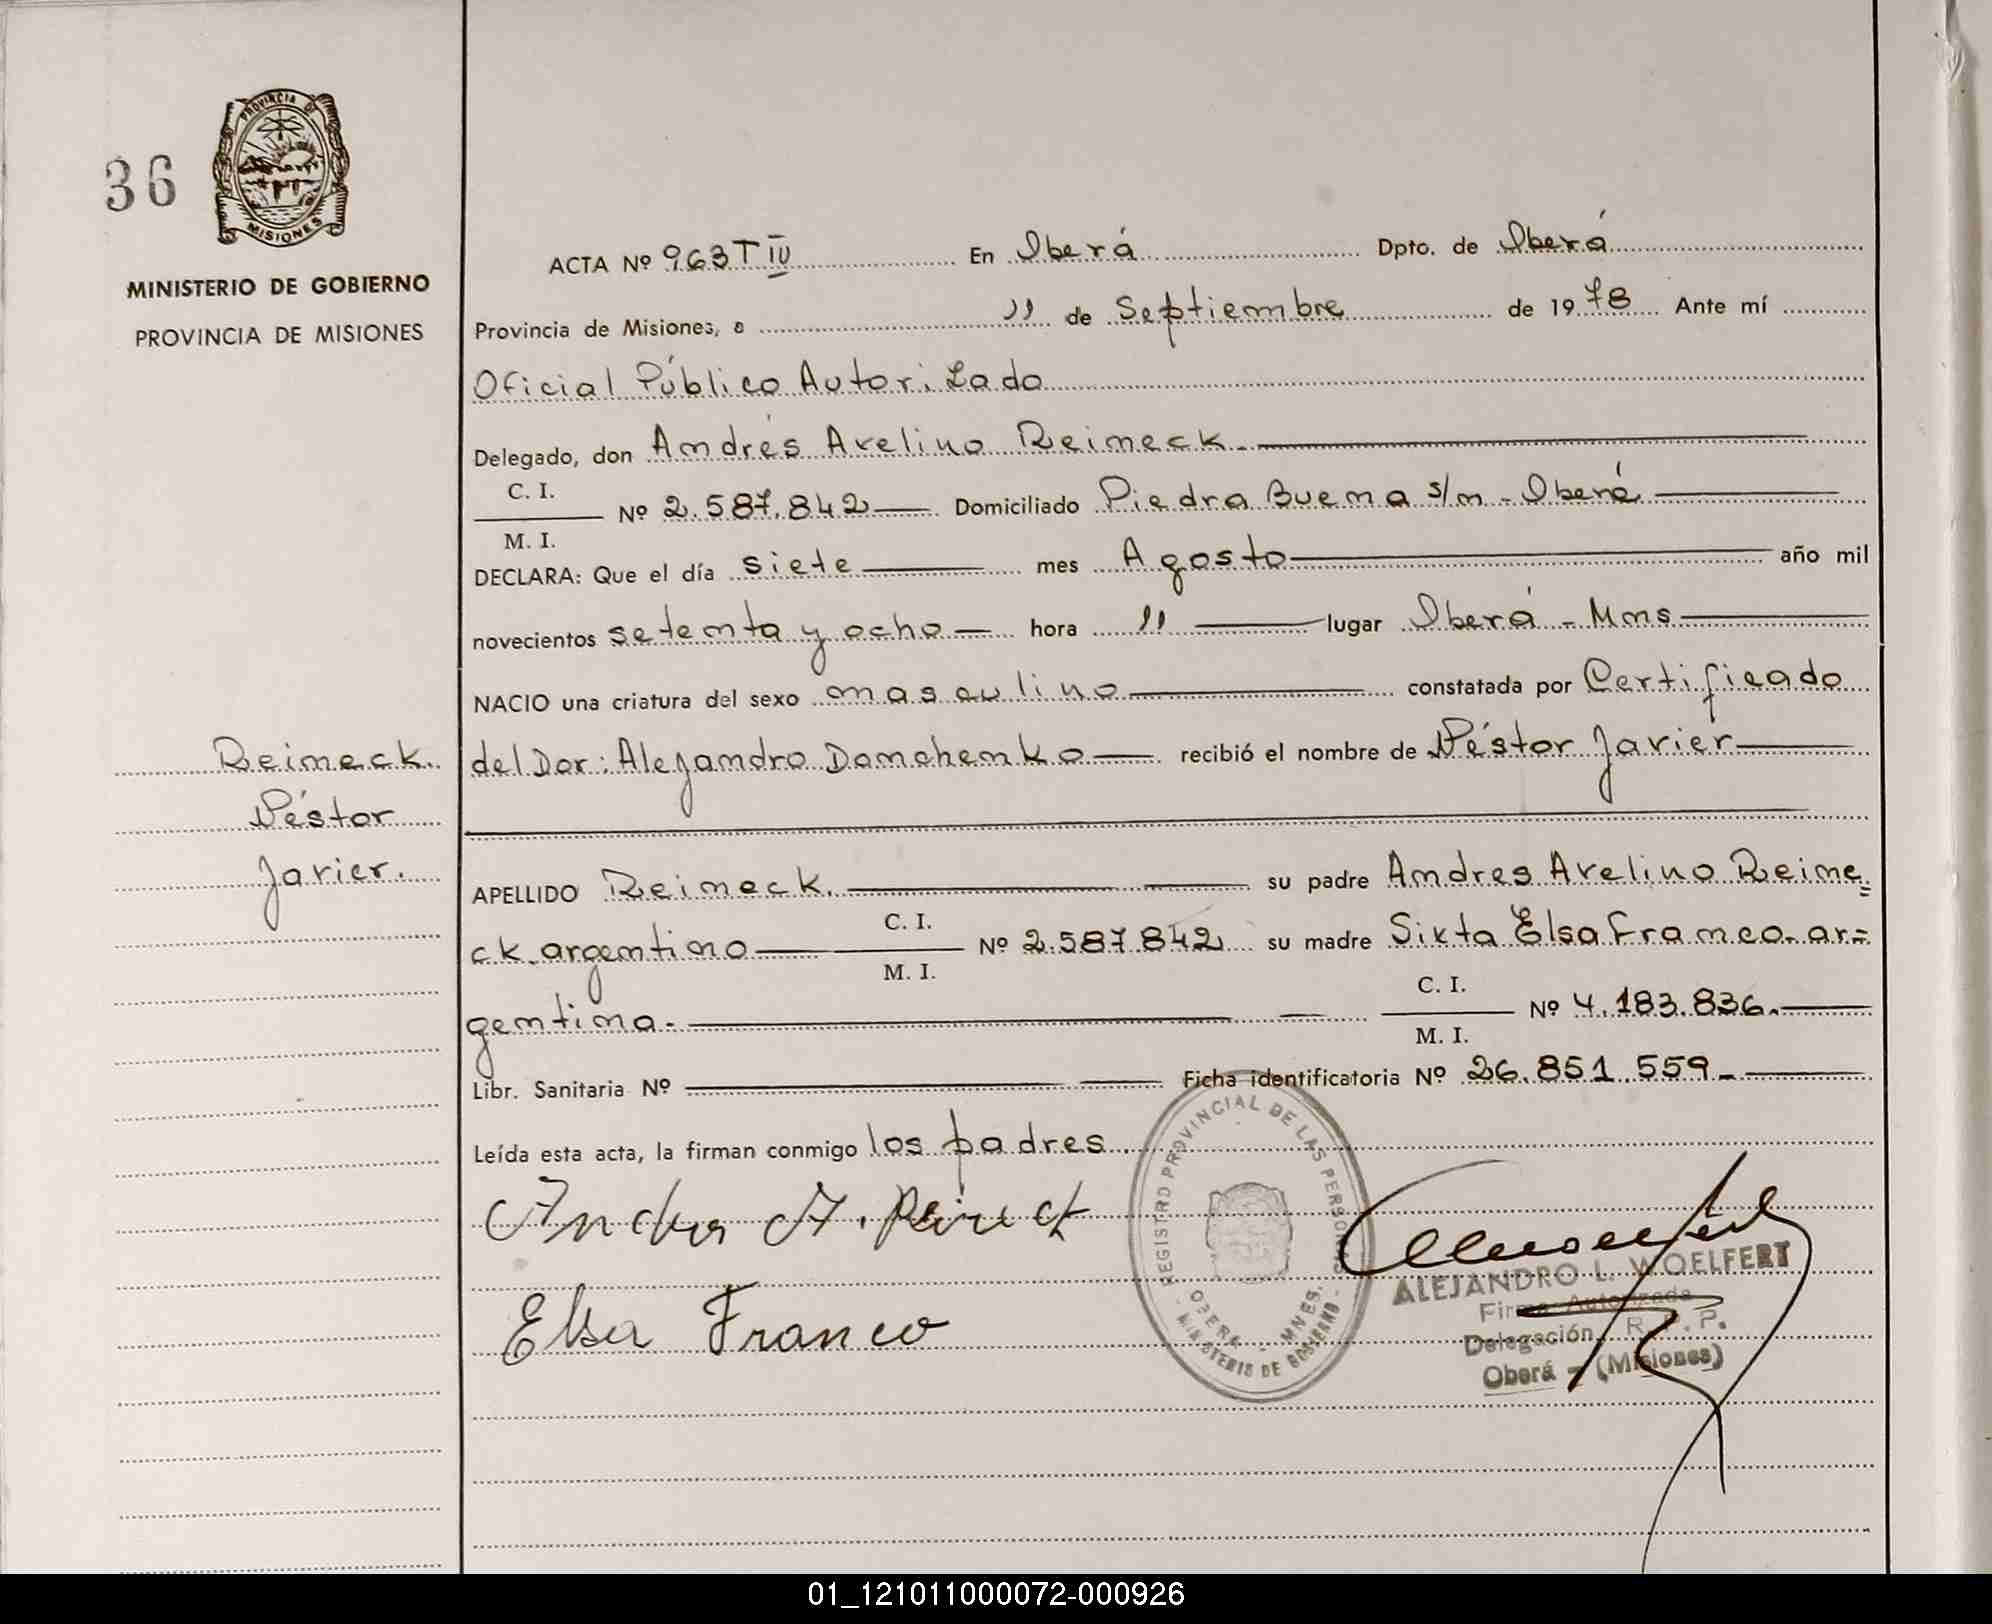 36
PROVINCIA DE
MISIONES
MINISTERIO DE GOBIERNO
PROVINCIA DE MISIONES
ACTA Nº 963 T IV En Oberá Dpto. de Oberá
Provincia de Misiones, a 11 de Septiembre de 1978 Ante mí
Oficial Público Autorizado
Delegado, don Andrés Avelino Reineck.
C. I.
Nº 2.587.842 Domiciliado Piedra Buena s/n - Oberá
M. I.
DECLARA: Que el día siete mes Agosto año mil
novecientos setenta y ocho hora 11 lugar Oberá - Mnes
NACIO una criatura del sexo masculino constatada por Certificado
del Dor: Alejandro Domchenko recibió el nombre de Néstor Javier
Reineck.
Néstor
Javier.
APELLIDO Reineck. su padre Andres Avelino Reine=
C. I.
ck. argentino Nº 2.587.842 su madre Sixta Elsa Franco. ar=
M. I.
C. I.
gentina. Nº 4.183.836.
M. I.
Libr. Sanitaria Nº Ficha identificatoria Nº 26.851.559-
Leída esta acta, la firman conmigo los padres.
Andres A. Reineck
Elsa Franco
REGISTRO PROVINCIAL DE LAS PERSONAS
OBERA - MNES.
- MINISTERIO DE GOBIERNO -
ALEJANDRO L. WOELFERT
Firma Autorizada
Delegación R. P. P.
Oberá - (Misiones)
01_121011000072-000926